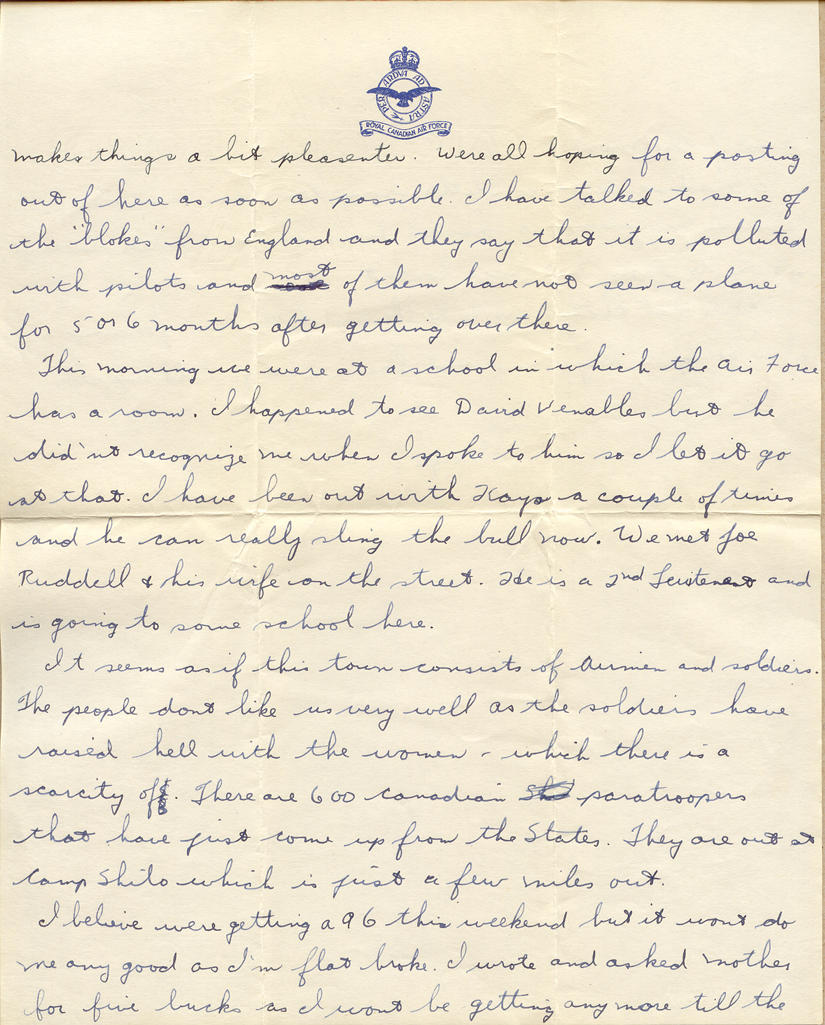 PER ARDVA AD ASTRA
ROYAL CANADIAN AIR FORCE
makes things a bit pleasenter. Were all hoping for a posting
out of here as soon as possible. I have talked to some of
the "blokes" from England and they say that it is polluted
with pilots and most of them have not seen a plane
for 5 or 6 months after getting over there.
This morning we were at a school in which the Air Force
has a room. I happened to see David Venables but he
did'nt recognize me when I spoke to him so I let it go
at that. I have been out with Kays a couple of times
and he can really sling the bull now. We met Joe
Ruddell & his wife on the street. He is a 2nd Leistenent and
is going to some school here.
It seems as if this town consists of Airmen and soldiers.
The people dont like us very well as the soldiers have
raised hell with the women - which there is a
scarcity of. There are 600 Canadian paratroopers
that have just come up from the States. They are out at
Camp Shilo which is just a few miles out.
I believe were getting a 96 this weekend but it wont do
me any good as I'm flat broke. I wrote and asked mother
for five bucks as I wont be getting any more till the